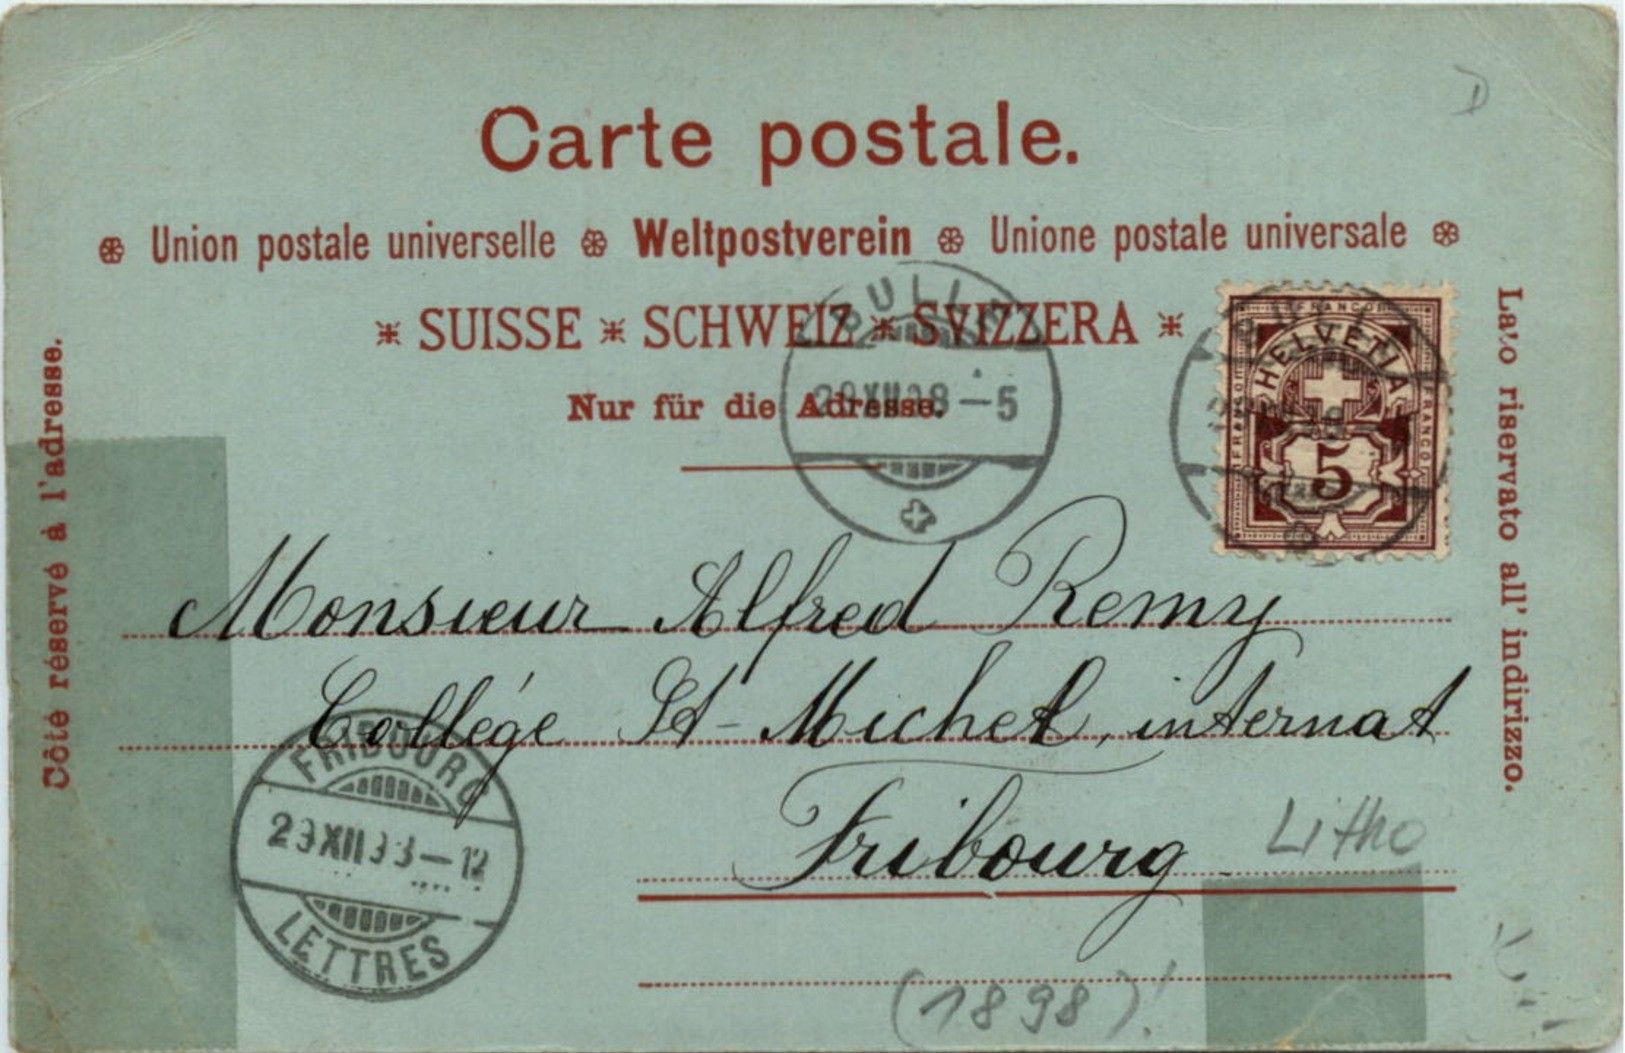 D
Carte postale.
Union postale universelle Weltpostverein Unione postale universale
SUISSE SCHWEIZ SVIZZERA
Nur für die Adresse.
Côté réservé à l'adresse.
Lato riservato all' indirizzo.
BULLE
29 XII 98 – 5
FRANCO
HELVETIA
FRANCO
FRANCO
5
Monsieur Alfred Remy
Collège St-Michel, internat
Fribourg
Litho
FRIBOURG
29 XII 98 – 12
LETTRES
(1898)!